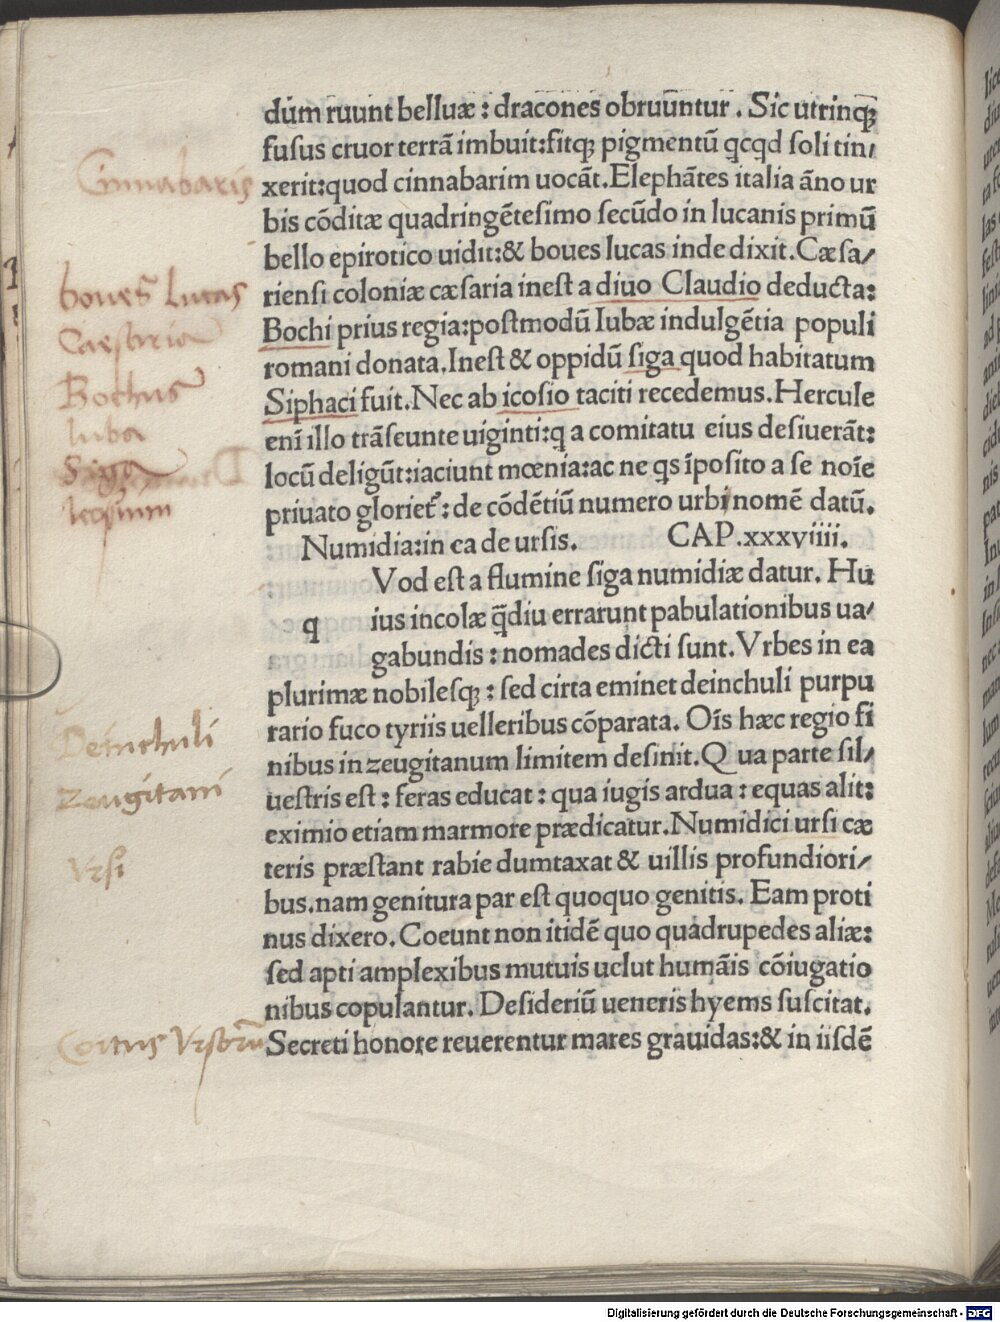 dum ruunt belluæ : dracones obruuntur . Sic utrinqꝫ
fusus cruor terrã imbuit:fitqꝫ pigmentũ qcqd soli tin/
xerit:quod cinnabarim uocãt.Elephãtes italia ãno ur
bis cõditæ quadringẽtesimo secũdo in lucanis primũ
bello epirotico uidit:& boues lucas inde dixit.Cæsa/
riensi coloniæ cæsaria inest a diuo Claudio deducta:
Bochi prius regia:postmodũ Iubæ indulgẽtia populi
romani donata.Inest & oppidũ siga quod habitatum
Siphaci fuit.Nec ab icosio taciti recedemus.Hercule
enĩ illo trãseunte uiginti:q a comitatu eius desiuerãt:
locũ deligũt:iaciunt mœnia:ac ne qs ĩposito a se noĩe
priuato glorieť: de cõdẽtiũ numero urbi nomẽ datũ.
Numidia:in ea de ursis. CAP.xxxviiii.
Vod est a flumine siga numidiæ datur. Hu
q ius incolæ q̃diu errarunt pabulationibus ua/
gabundis : nomades dicti sunt.Vrbes in ea
plurimæ nobilesqꝫ : sed cirta eminet deinchuli purpu
rario fuco tyriis uelleribus cõparata. Oĩs hæc regio fi
nibus in zeugitanum limitem desinit.Q ua parte sil/
uestris est : feras educat : qua iugis ardua : equas alit:
eximio etiam marmore prædicatur.Numidici ursi cæ
teris præstant rabie dumtaxat & uillis profundiori/
bus.nam genitura par est quoquo genitis. Eam proti
nus dixero.Coeunt non itidẽ quo quadrupedes aliæ:
sed apti amplexibus mutuis uelut humãis cõiugatio
nibus copulantur. Desideriũ ueneris hyems suscitat.
Secreti honore reuerentur mares grauidas:& in iisdẽ
Cinnabaris
boues Lucas
Caesaria
Bochus
Iuba
Siga
Icosium
Deinchuli
Zeugitani
Vrsi
Coitus Vrsorũ
Digitalisierung gefördert durch die Deutsche Forschungsgemeinschaft - DFG